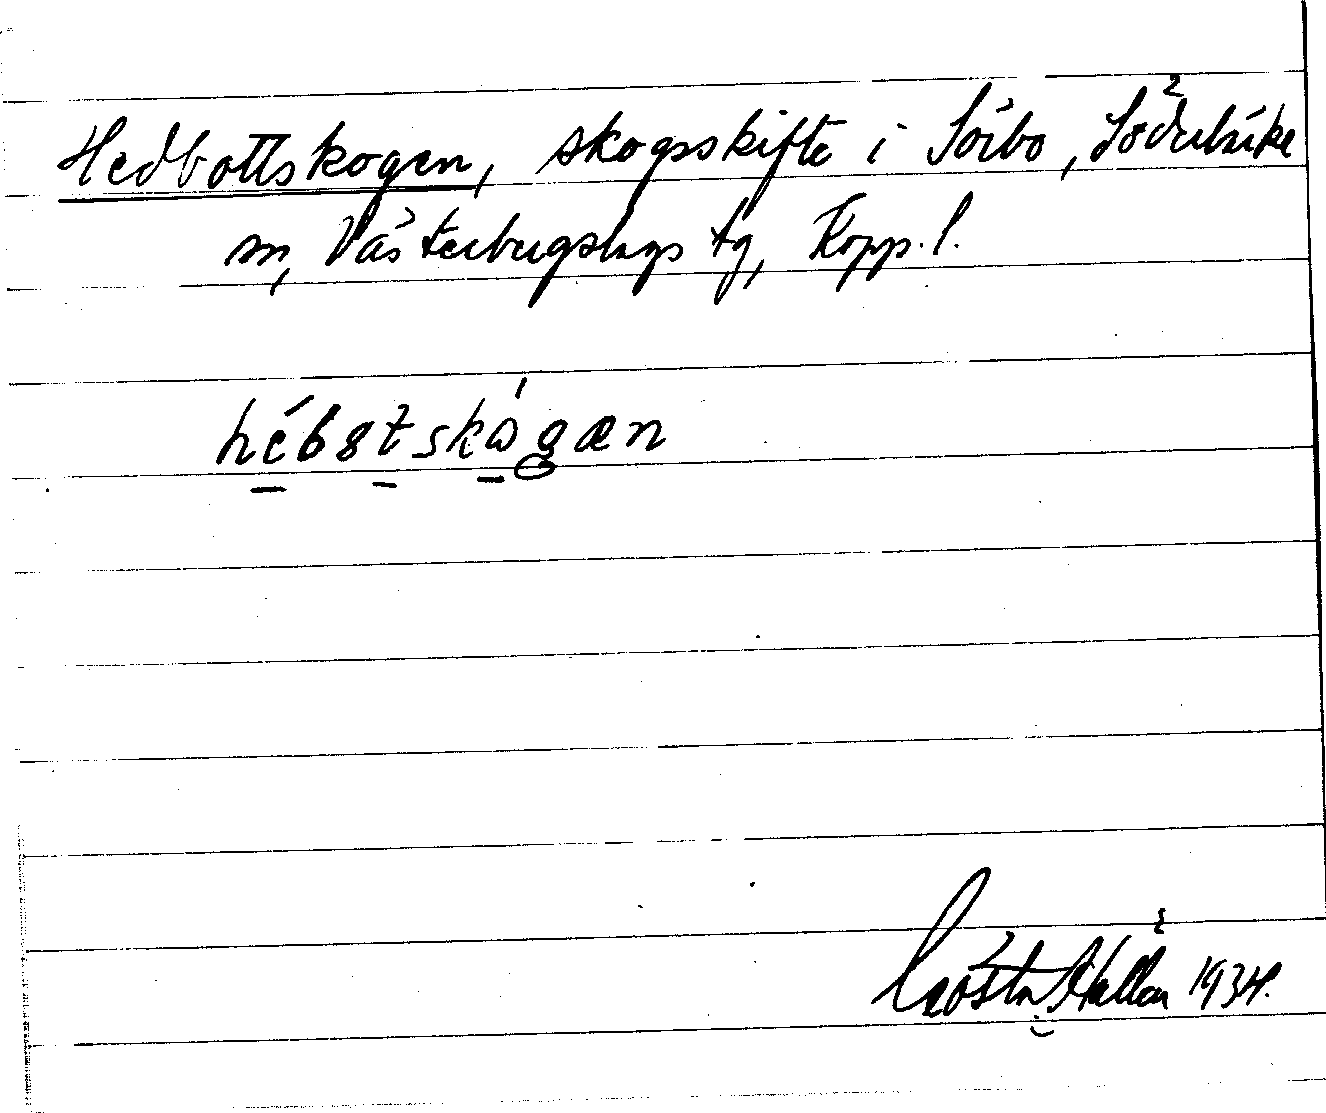 Hedbottskogen, skogsskifte i Sörbo, Söderbärke
sn, Västerbergslags tg, Kopp. l.
hébɞtskɷ́gæn
Gösta Hallén 1934.